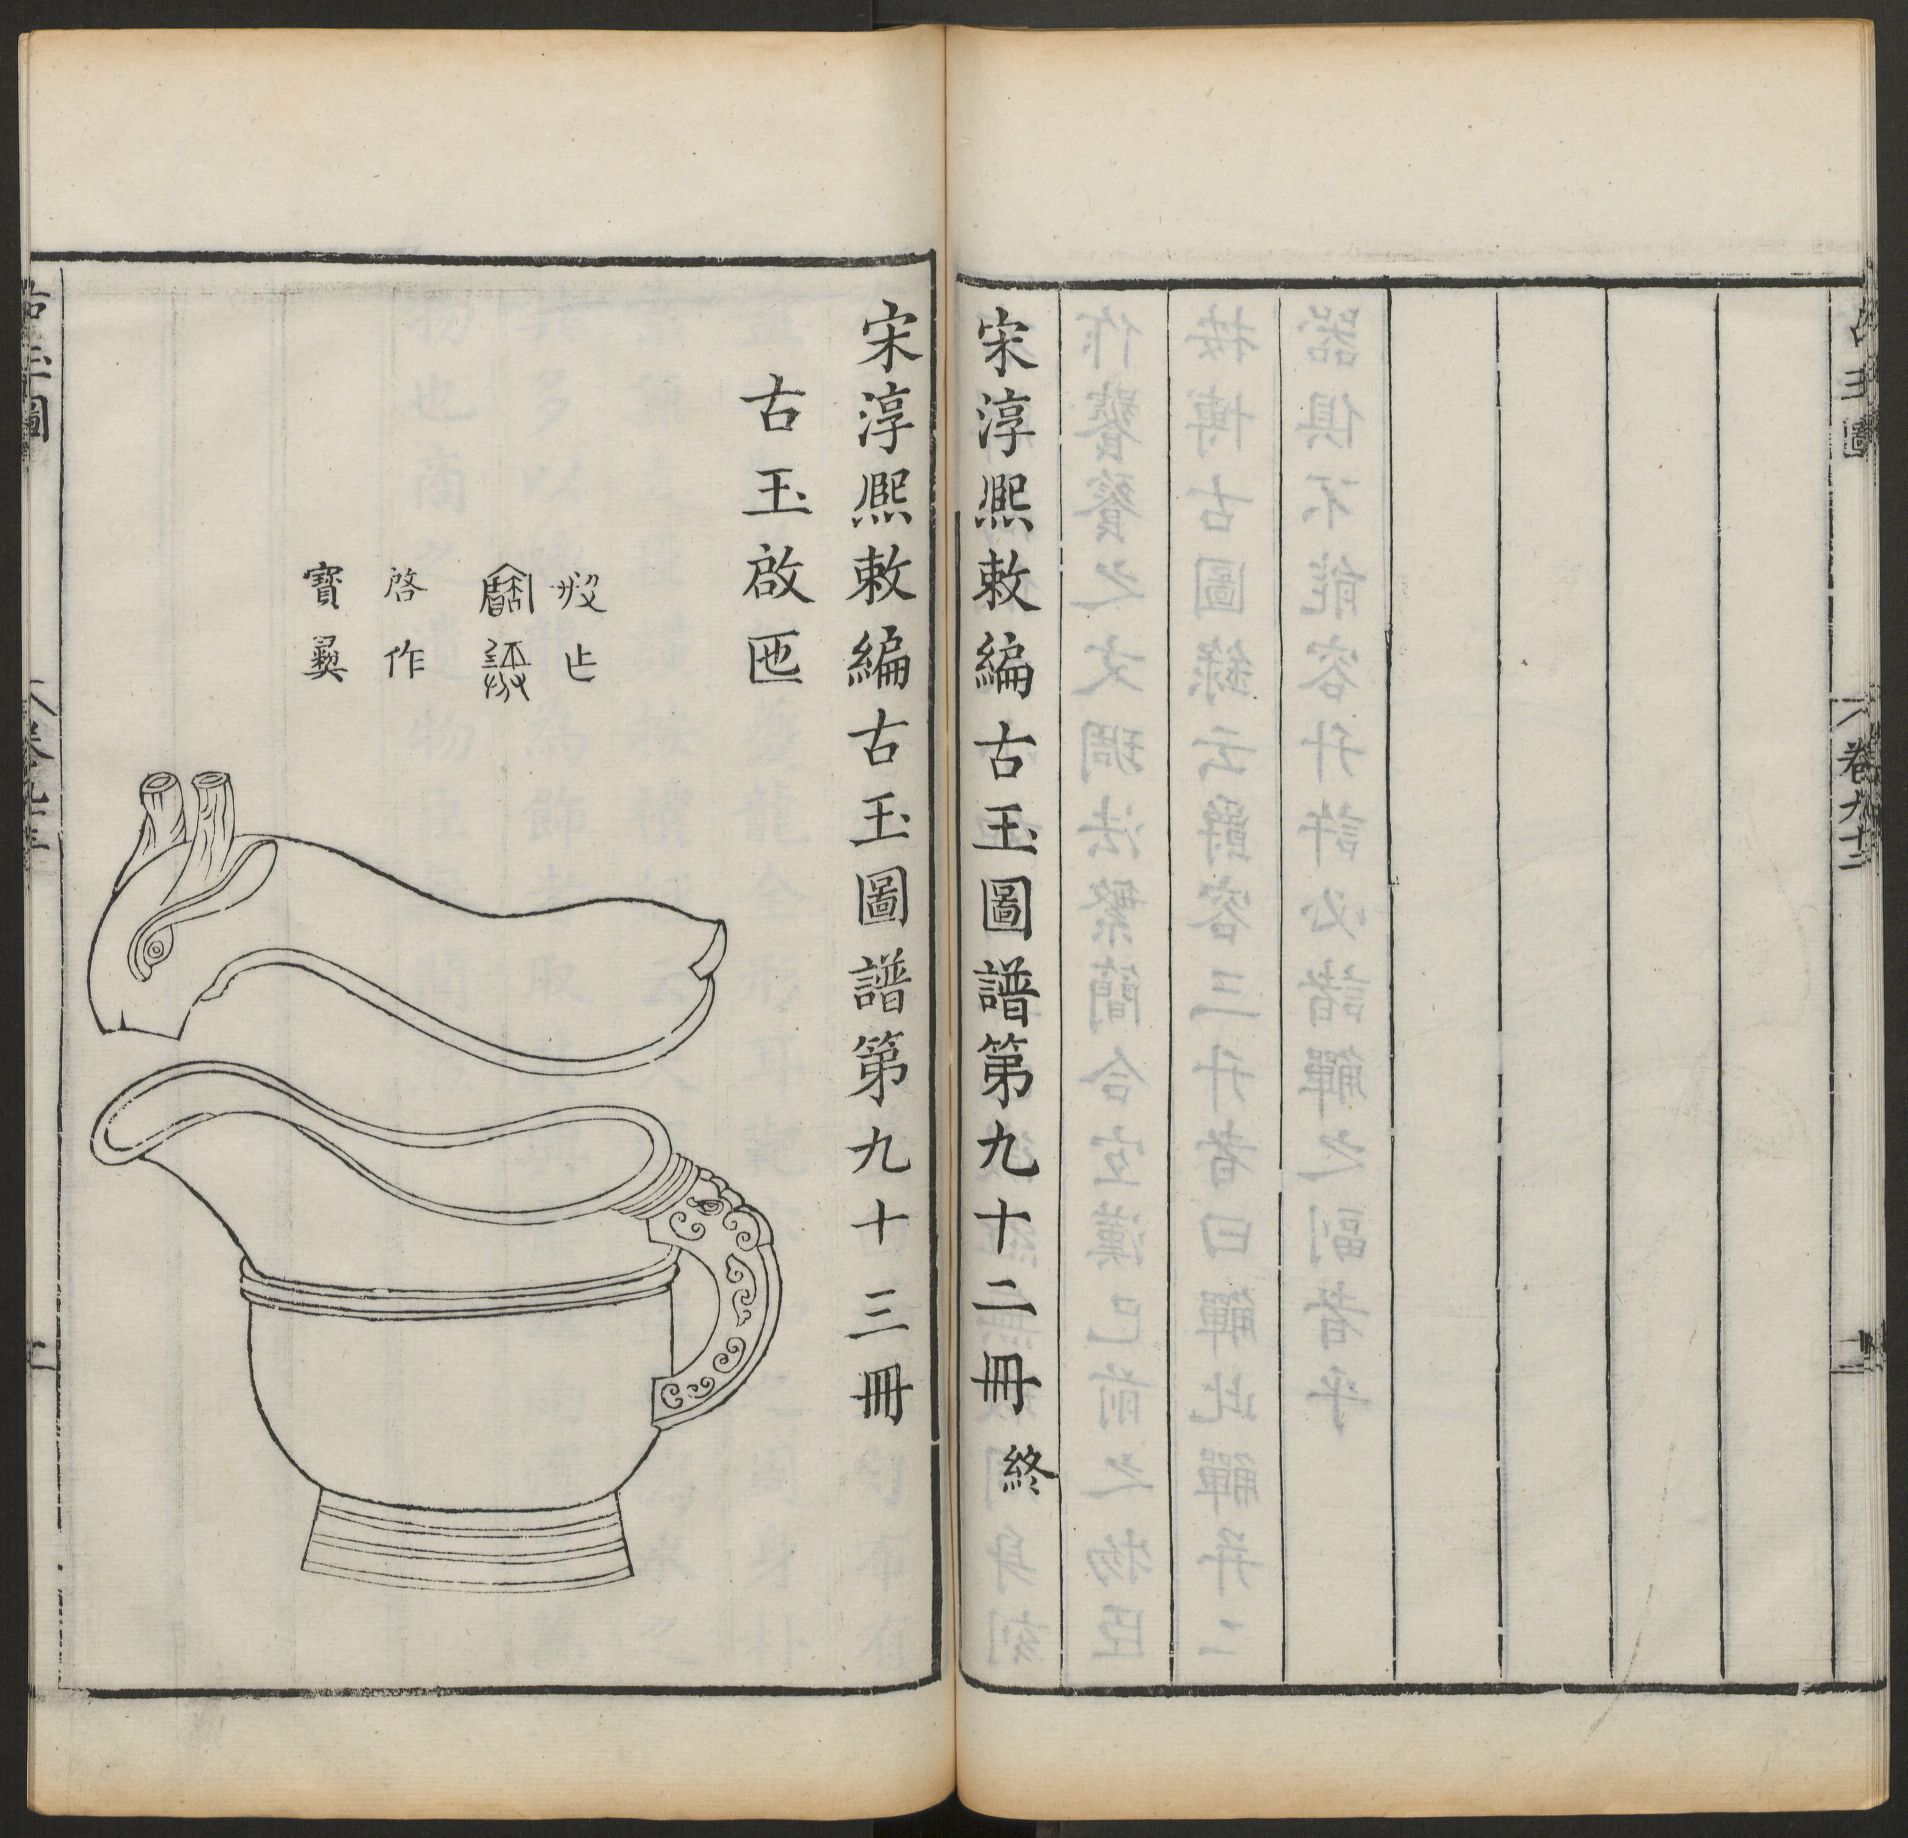 古玉圖
卷九十二
宋淳熙敕編古玉圖譜第九十二冊 終
宋淳熙敕編古玉圖譜第九十三冊
古玉啟匜
啓作
寶彝
古玉圖
卷九十三